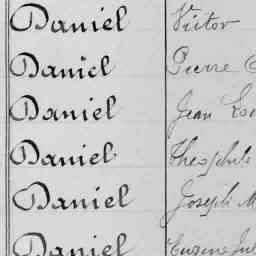 Daniel Victor
Daniel Pierre
Daniel Jean
Daniel Théophile
Daniel Joseph M
Daniel Eugène Jul